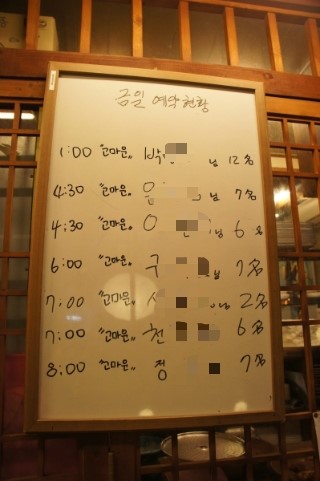 금일 예약현황
1:00 "고마운" 박 님 12名
4:30 "고마운" 님 7名
4:30 "고마운" 님 6名
6:00 "고마운" 구 님 7名
7:00 "고마운" 님 2名
7:00 "고마운" 천 6名
8:00 "고마운" 정 7名